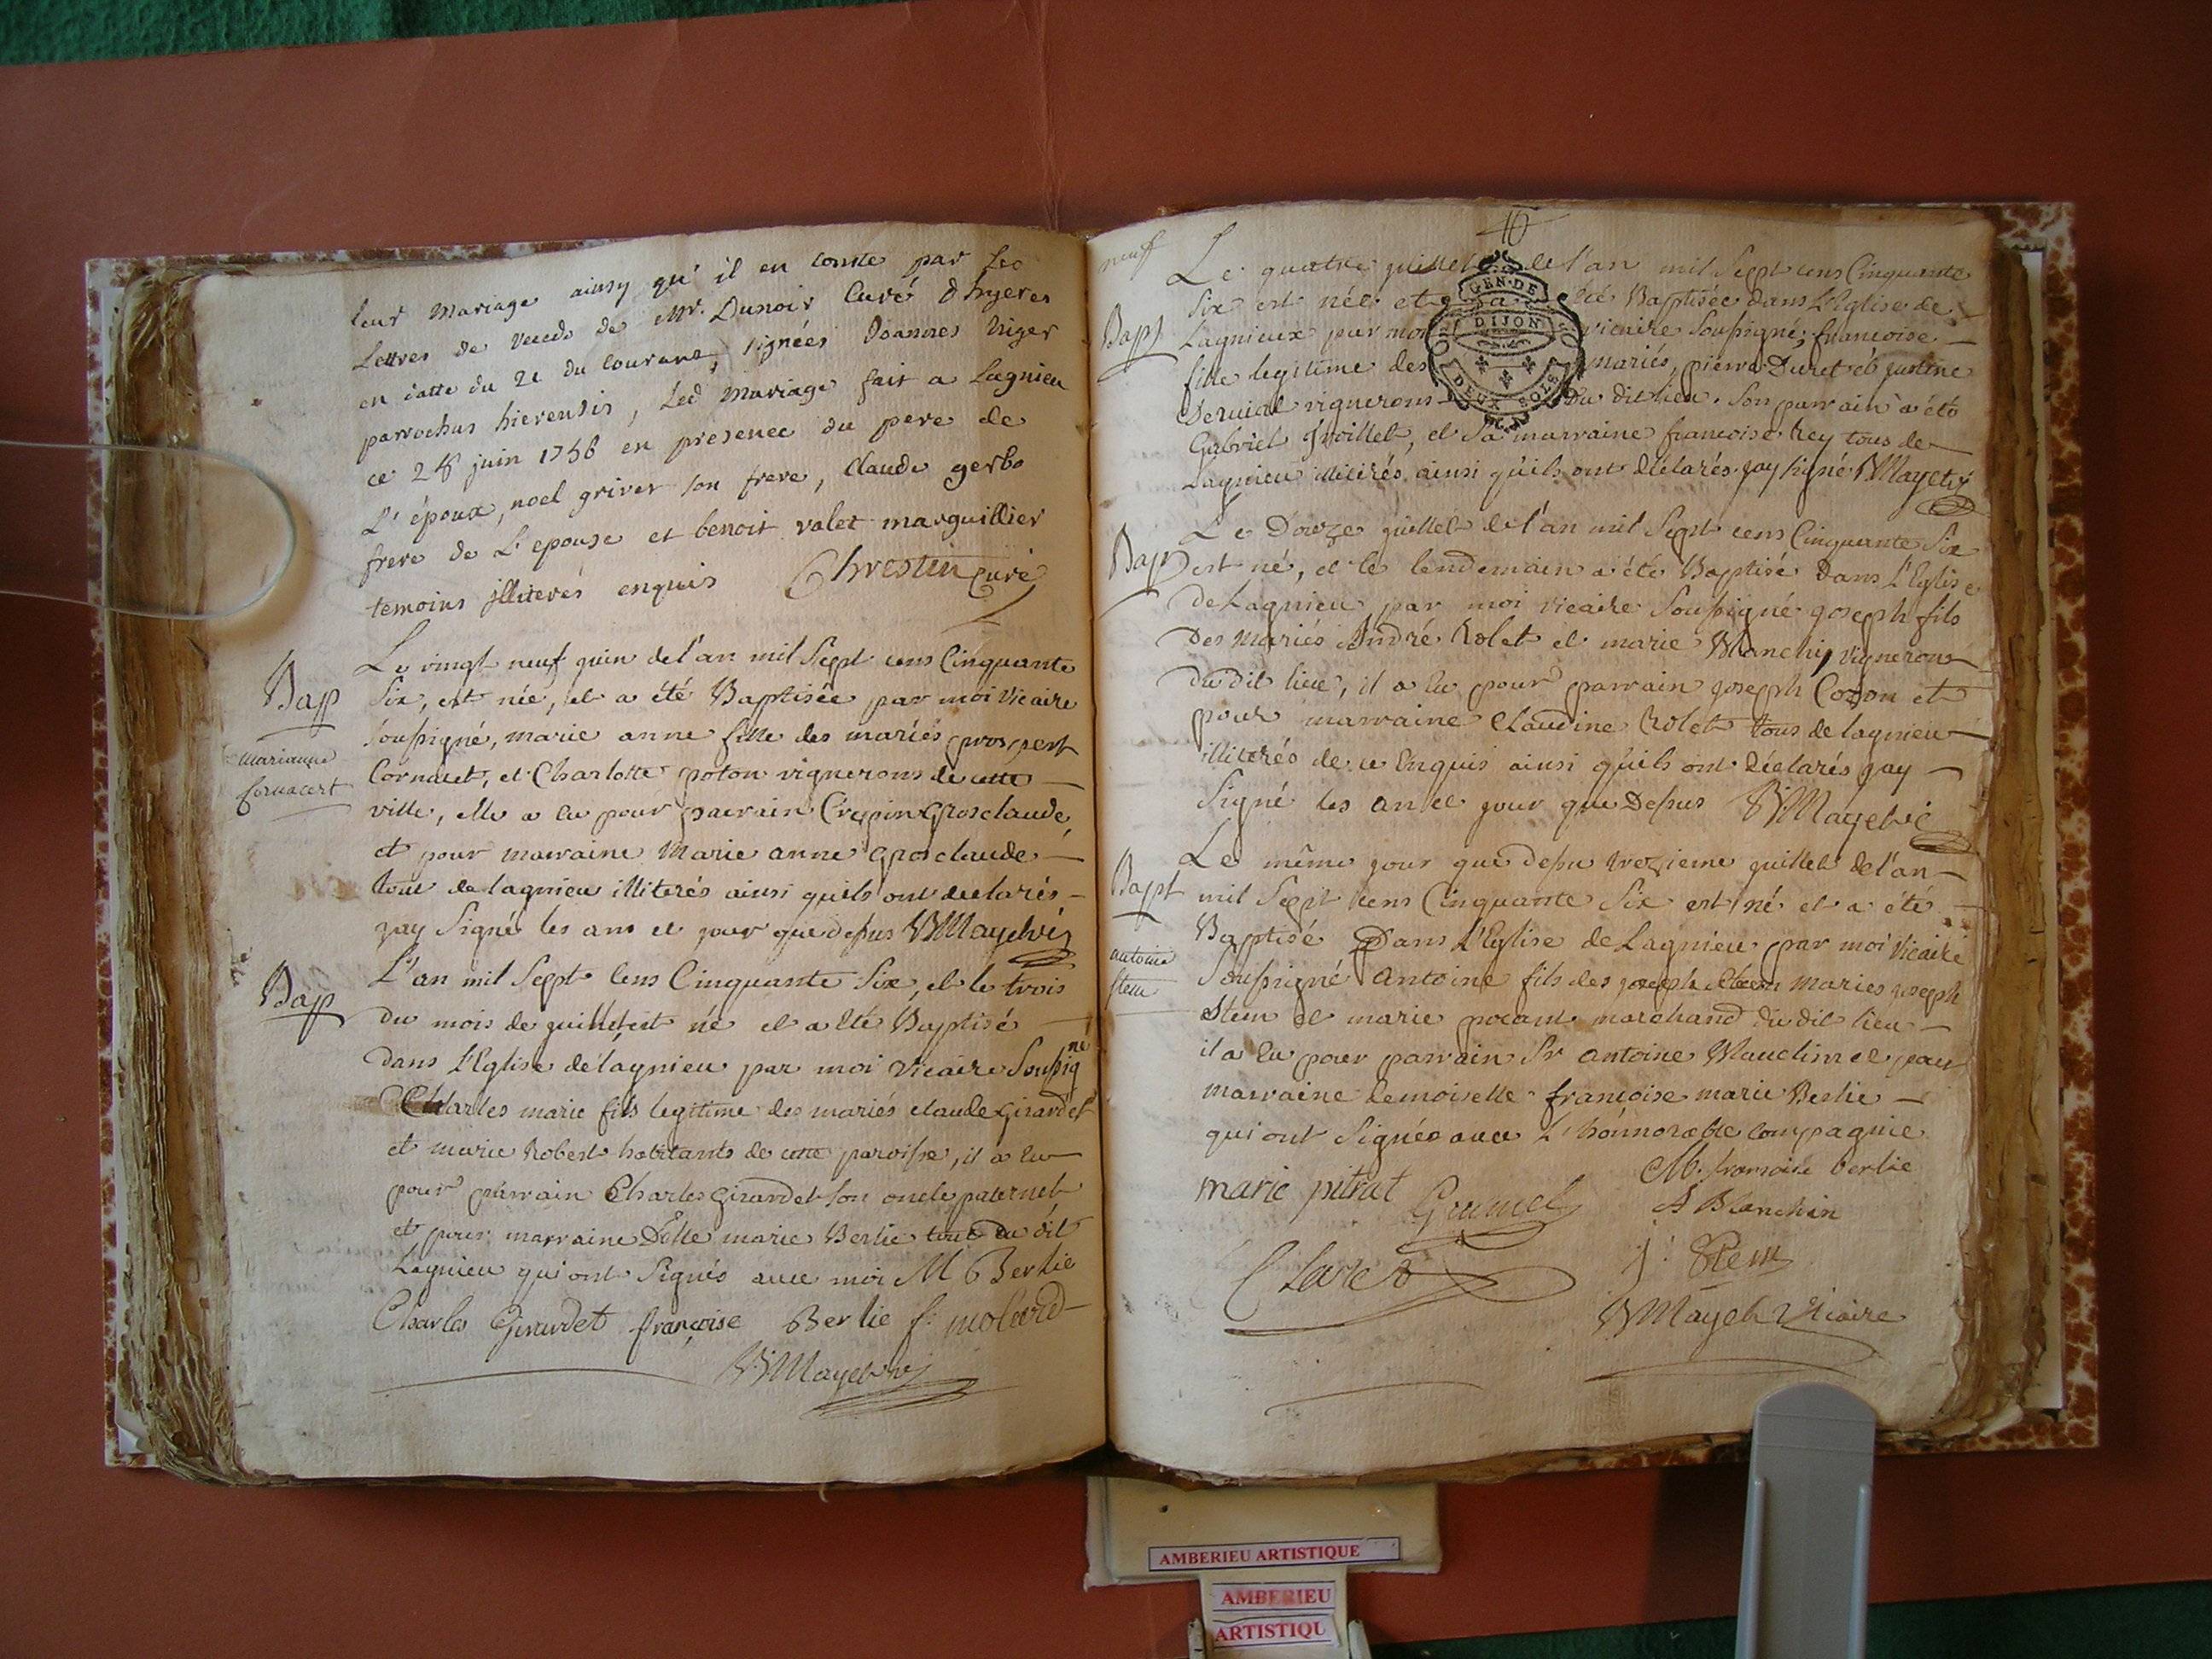 leur mariage ainsy qu'il en conste par les
Lettres de recedo de Mr. Dunoir Curé d'hyeres
en datte du 21 du courant, signées Joannes Niger
parrochus hierensis, led mariage fait a Lagnieu
ce 28 juin 1756 en presence du pere de
L'époux, noel griver son frere, Claude gerbo
frere de L'epouse et benoit valet marguillier
temoins jlliterés enquis Chrestin curé
Bap
marianne
Cornacert
Le vingt neuf guin de l'an mil Sept cens Cinquante
Six, est née, et a été Baptisée par moi vicaire
soussigné, marie anne fille des mariés prospert
Cornacet, et Charlotte poton vignerons de cette
ville, elle a eu pour parrain Crepin Grosclaude,
et pour marraine Marie anne Grosclaude
tous de lagnieu illiterés ainsi quils ont declarés
jay Signé les ans et jour que dessus BMayet vic
Bap
L'an mil Sept Cens Cinquante Six, et le trois
du mois de guillet est né et a été Baptisé
dans l'Eglise de lagnieu par moi vicaire Soussigné
Charles marie fils legitime des mariés claude Girardet
et marie Robert habitants de cette paroisse, il a eu
pour parrain Charles Girardet son oncle paternel
et pour marraine Delle marie Berlie tous du dit
Lagnieu qui ont Signés avec moi M Berlie
Charles Girardet françoise Berlie f. molard
BMayet vic
neuf
GEN. DE
DIJON
DEUX SOLS
Bapt
Le quatre guillet de l'an mil Sept cens Cinquante
Six est née et a été Baptisée dans l'Eglise de
Lagnieux par moi vicaire soussigné, francoise
fille legitime des mariés, pierre Duret et justine
Deruial vignerons du dit lieu. Son parrain a été
Gabriel Groillet, et Sa marraine francoise Rey tous de
Lagnieu illiterés ainsi quils ont déclarés jay signé BMayet vic
Bap
Le Douze guillet de l'an mil Sept cens Cinquante Six
est né, et le lendemain a été Baptisé dans l'Eglise
de Lagnieu par moi vicaire Soussigné joseph fils
des mariés André Rolet et marie Blanchin vignerons
du dit lieu, il a eu pour parrain joseph Cozon et
pour marraine Claudine Rolet tous de lagnieu
illiterés de ce Enquis ainsi quils ont déclarés jay
Signé les an et jour que dessus BMayet vic
Bapt
antoine
stem
Le même jour que dessu trezieme guillet de l'an
mil Sept cens Cinquante Six est né et a été
Baptisé Dans l'Eglise de Lagnieu par moi vicaire
Soussigné antoine fils des joseph mariés joseph
Stem et marie pocant marchand du dit lieu
il a eu pour parrain Sr antoine Blanchin et pour
marraine demoiselle françoise marie Berlie
qui ont Signés avec L'honnorable compagnie
M. francoise berlie
marie pitrat Grumel A Blanchin
Claret j. Stem
BMayet Vicaire
AMBERIEU ARTISTIQUE
AMBERIEU
ARTISTIQU